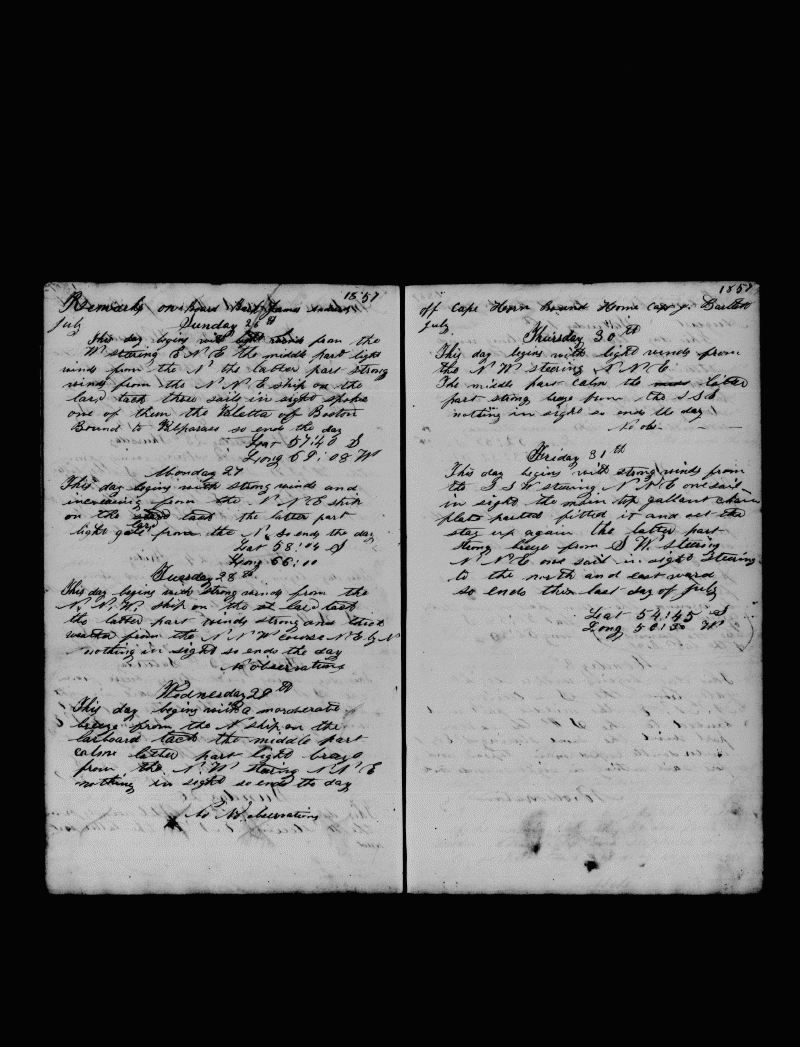 1857
Remarks on Board Bark James Andrews
July Sunday 26th
This day begins with light winds from the
W steering E N E the middle part light
winds from the N the latter part strong
winds from the N N E ship on the
lard tack three sails in sight spoke
one of them the of Boston
Bound to Valparaso so ends the day
Lat 57:40 S
Long 69:08 W
Monday 27
This day begins with strong winds and
increasing from the N N E ship
on the lard tack the latter part
light gale from the N so ends the day
Lat 58:04 S
Long 66:00
Tuesday 28th
This day begins with strong winds from the
N N W ship on the st lard tack
the latter part winds strong and thick
weather from the N N W course N E by N
nothing in sight so ends the day
No observations
Wednesday 29th
This day begins with a morderate
breeze from the N ship on the
larboard tack the middle part
calm latter part light breze
from the N. W staring N N E
nothing in sight so ends the day
No observations
1857
off Cape Horn Bound Home Capt Bartlett
July
Thursday 30th
This day begins with light winds from
the N W steering N N E
The middle part calm the latter
part strong breze from the S S E
nothing in sight so ends the day
No obs
Friday 31th
This day begins with strong winds from
the S S W steering N N E one sail
in sight the main top gallant chain
plate parted fitted it and set the
stay up again the latter part
strong breeze from S W. steering
N N E one sail in sight Steering
to the north and east ward
so ends the last day of July
Lat 54:45 S
Long 50:30 W